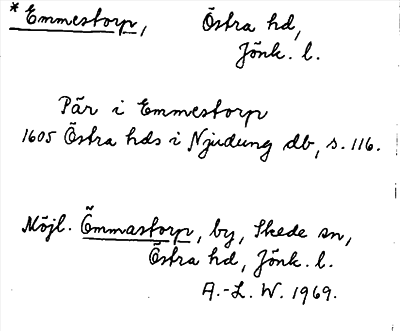 * Emmestorp, Östra hd,
Jönk. l.
Pär i Emmestorp
1605 Östra hds i Njudung db, s. 116.
Möjl. Ömmastorp, by, Skede sn,
Östra hd, Jönk. l.
A.-L. W. 1969.